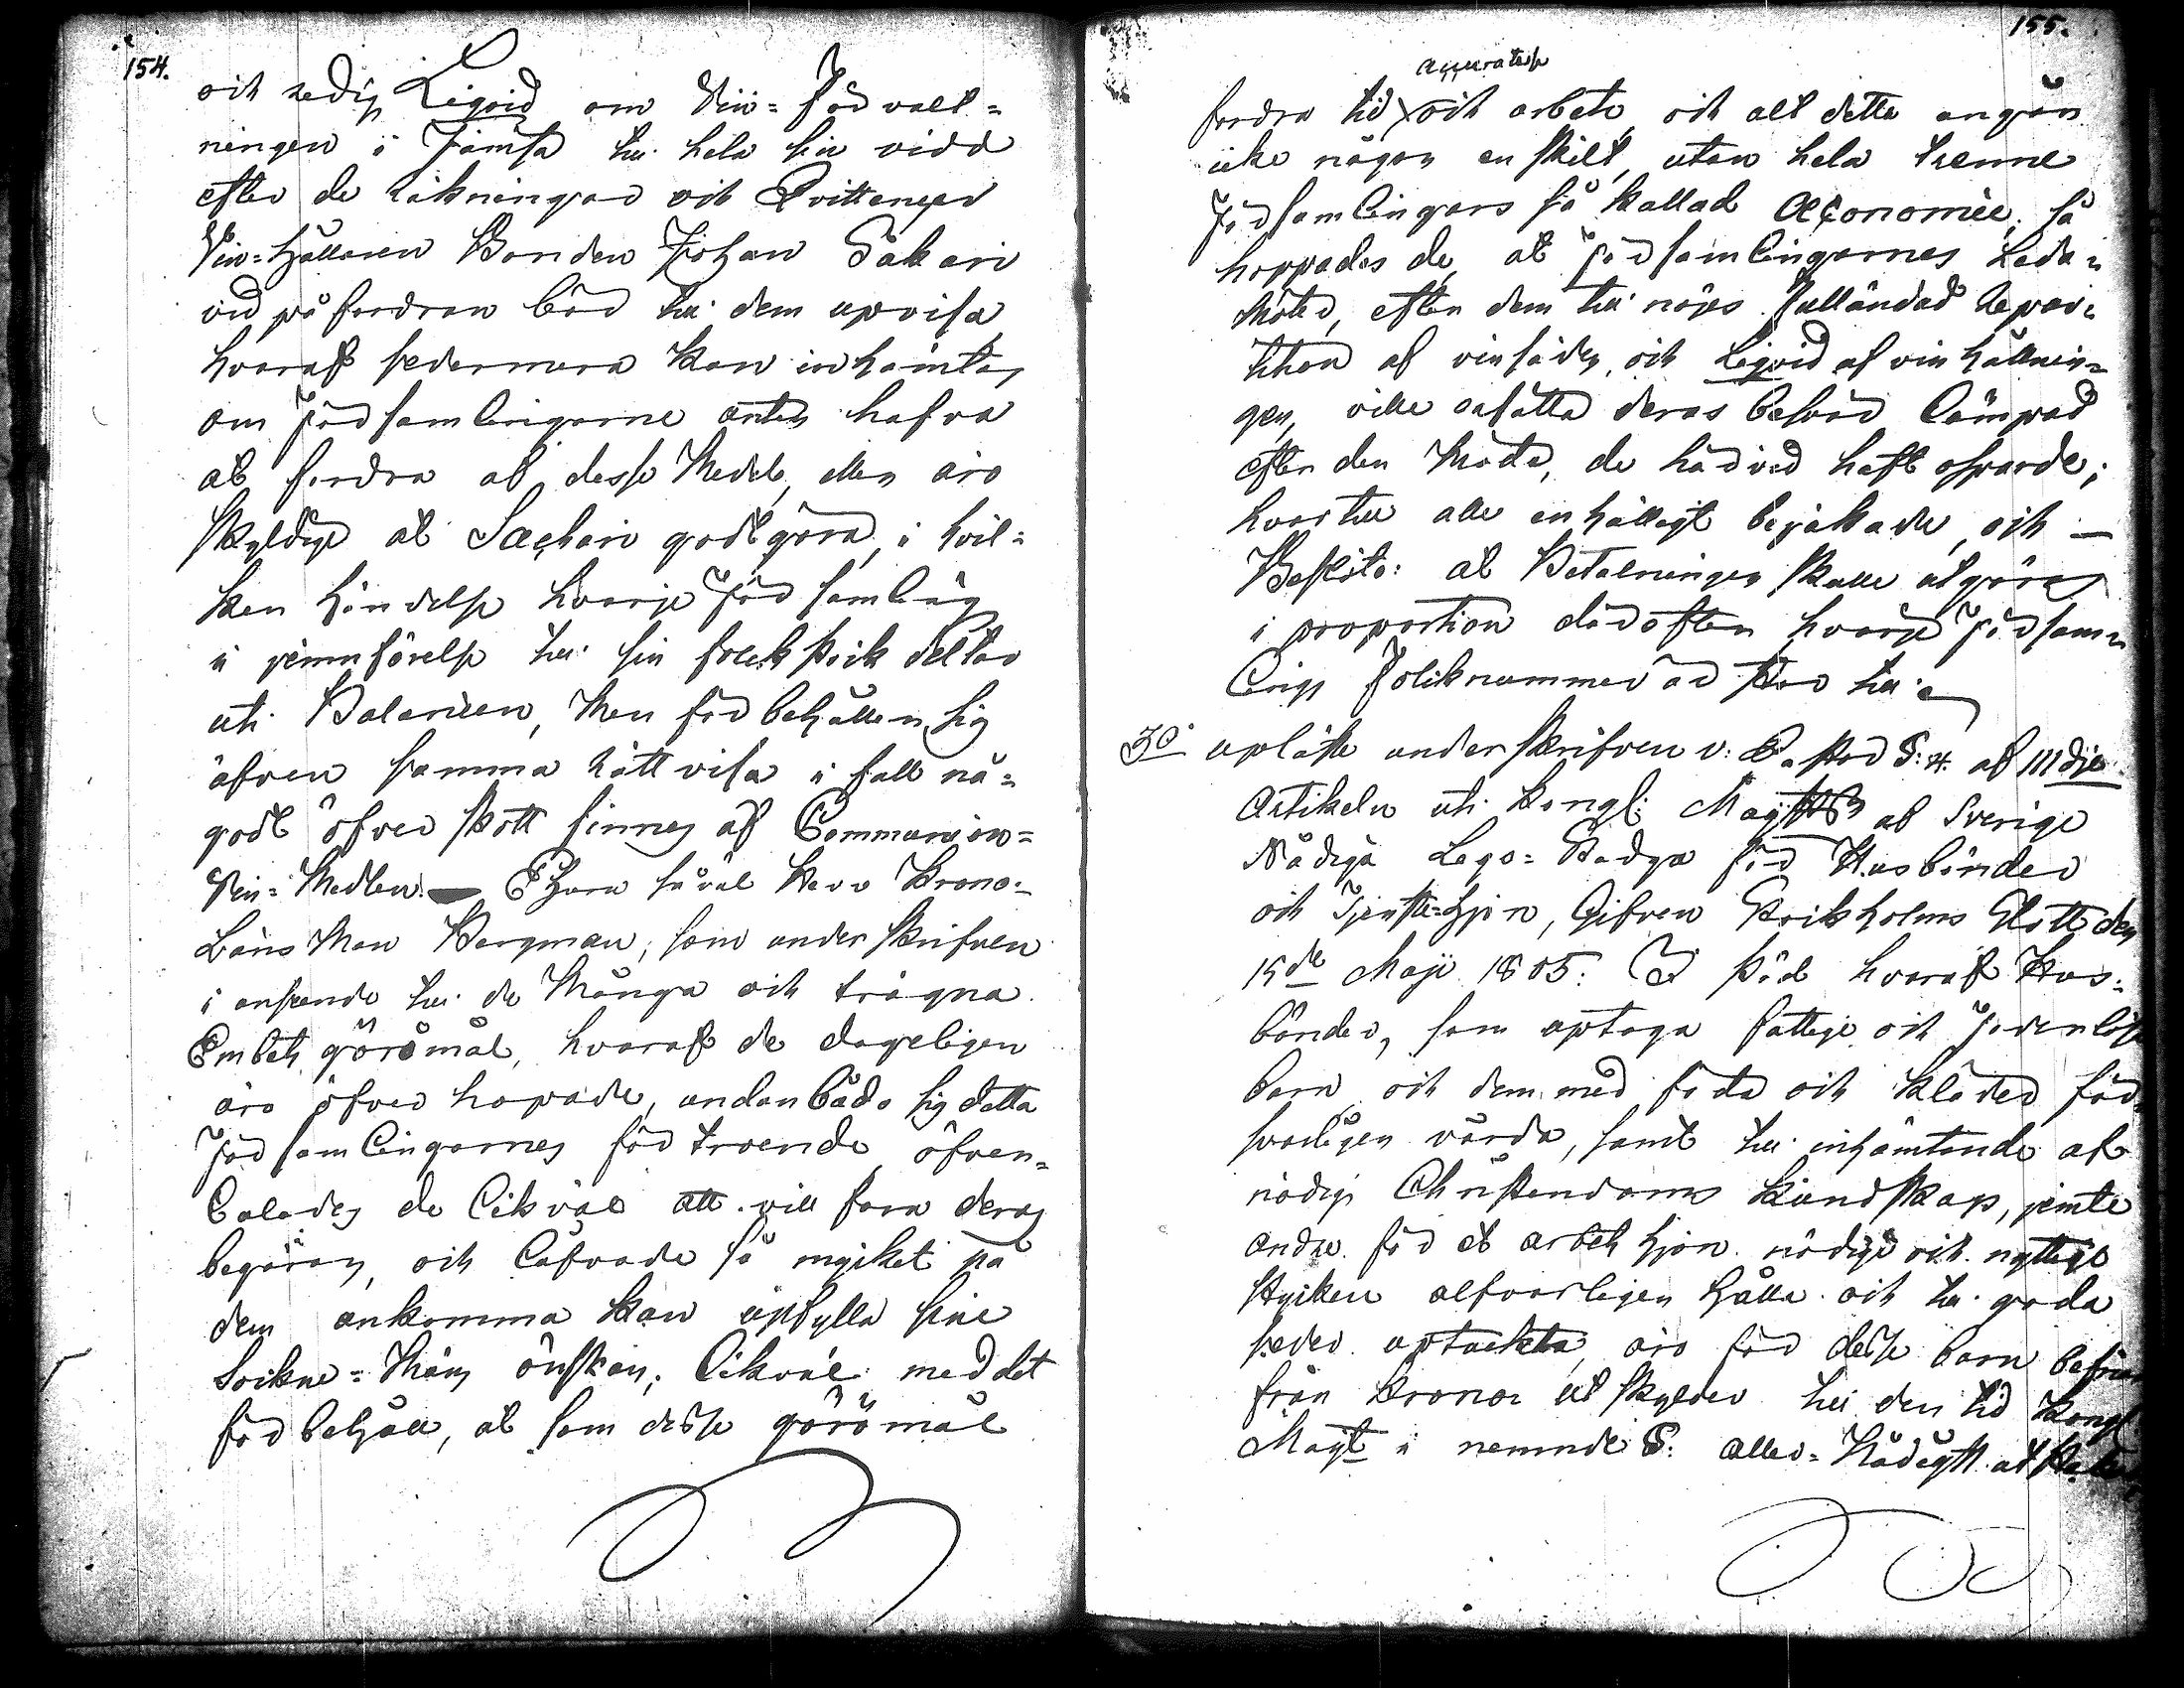 154.
och redig Liqvid om Vin= Förvalt=
ningen i Jämsä till hela sin vidd
efter de Räkningar och Qvittenser
Vin=Hållaren Bonden Johan Säkäri
vid påfordran bör till dem upvisa
hvaraf sedermera kan inhämtas
om Församlingarne anten hafva
at fordra af desse Medel, eller äro
skyldige at Sæckäri godtgöra, i hvil=
ken händelse hvarje Församling
i jemnförelse till sin folkstock deltar
uti Balancen, Men förbehåller sig
äfven samma rättvisa i fall nå=
godt öfverskott finnes af Communion=
Vin=Medlen. — Ehuru såväl Herr Krono=
Läns Man Bergman, som underskrifven
i anseende till de Många och trägna
Embets göromål, hvaraf de dageligen
äro öfverhopade, undanbådo sig detta
Församlingarnes förtroende öfven=
talades de likväl att villfara deras
begäran, och låfvade så mycket på
dem ankomma kan upfylla sine
Sockne=Mäns önskan; likväl med det
förbehåll, at som desse göromål
155.
accuratesse
fordra tid och arbete och alt detta angår
icke någon enskilt, utan hela trenne
Församlingars så kallad Œconomie; så
hoppades de, at Församlingarnes Leda=
Möter, efter dem till nöjes fulländad Repar=
tition af vinsäden, och Liqvid af vinhållnin=
gen, ville ersätta deras besvär lämpad
efter den Möda, de härvid haft osparde;
hvartill alle enhälligt bejakade, och —
Beslöto: at Betalningen skulle utgöras
i proportion därefter hvarje Försam=
lings Folknummer är stor till.
3o uplästes underskrifven v. Pastor §: 4. af III dje
Artikeln uti Kongl: Majts af Sverige
Nådiga Lego=Stadga för Husbönder
och Tjenste=Hjon, Gifven Stockholms Slott den
15de Maji 1805: I stöd hvaraf Hus=
bönder, som uptaga fattige och Föräldralösa
barn och dem med föda och kläder för=
svarligen vårda, samt till inhämtande af
nödig Christendoms kundskap, jemte
andre för et arbets hjon nödige och nyttige
stycken alfvarligen hålla och till goda
seder uptuckta, äro för desse barn befriade
från Kronans utskylder till den tid Kongl
Majt i nemnde §: Aller=Nådigst utstakat